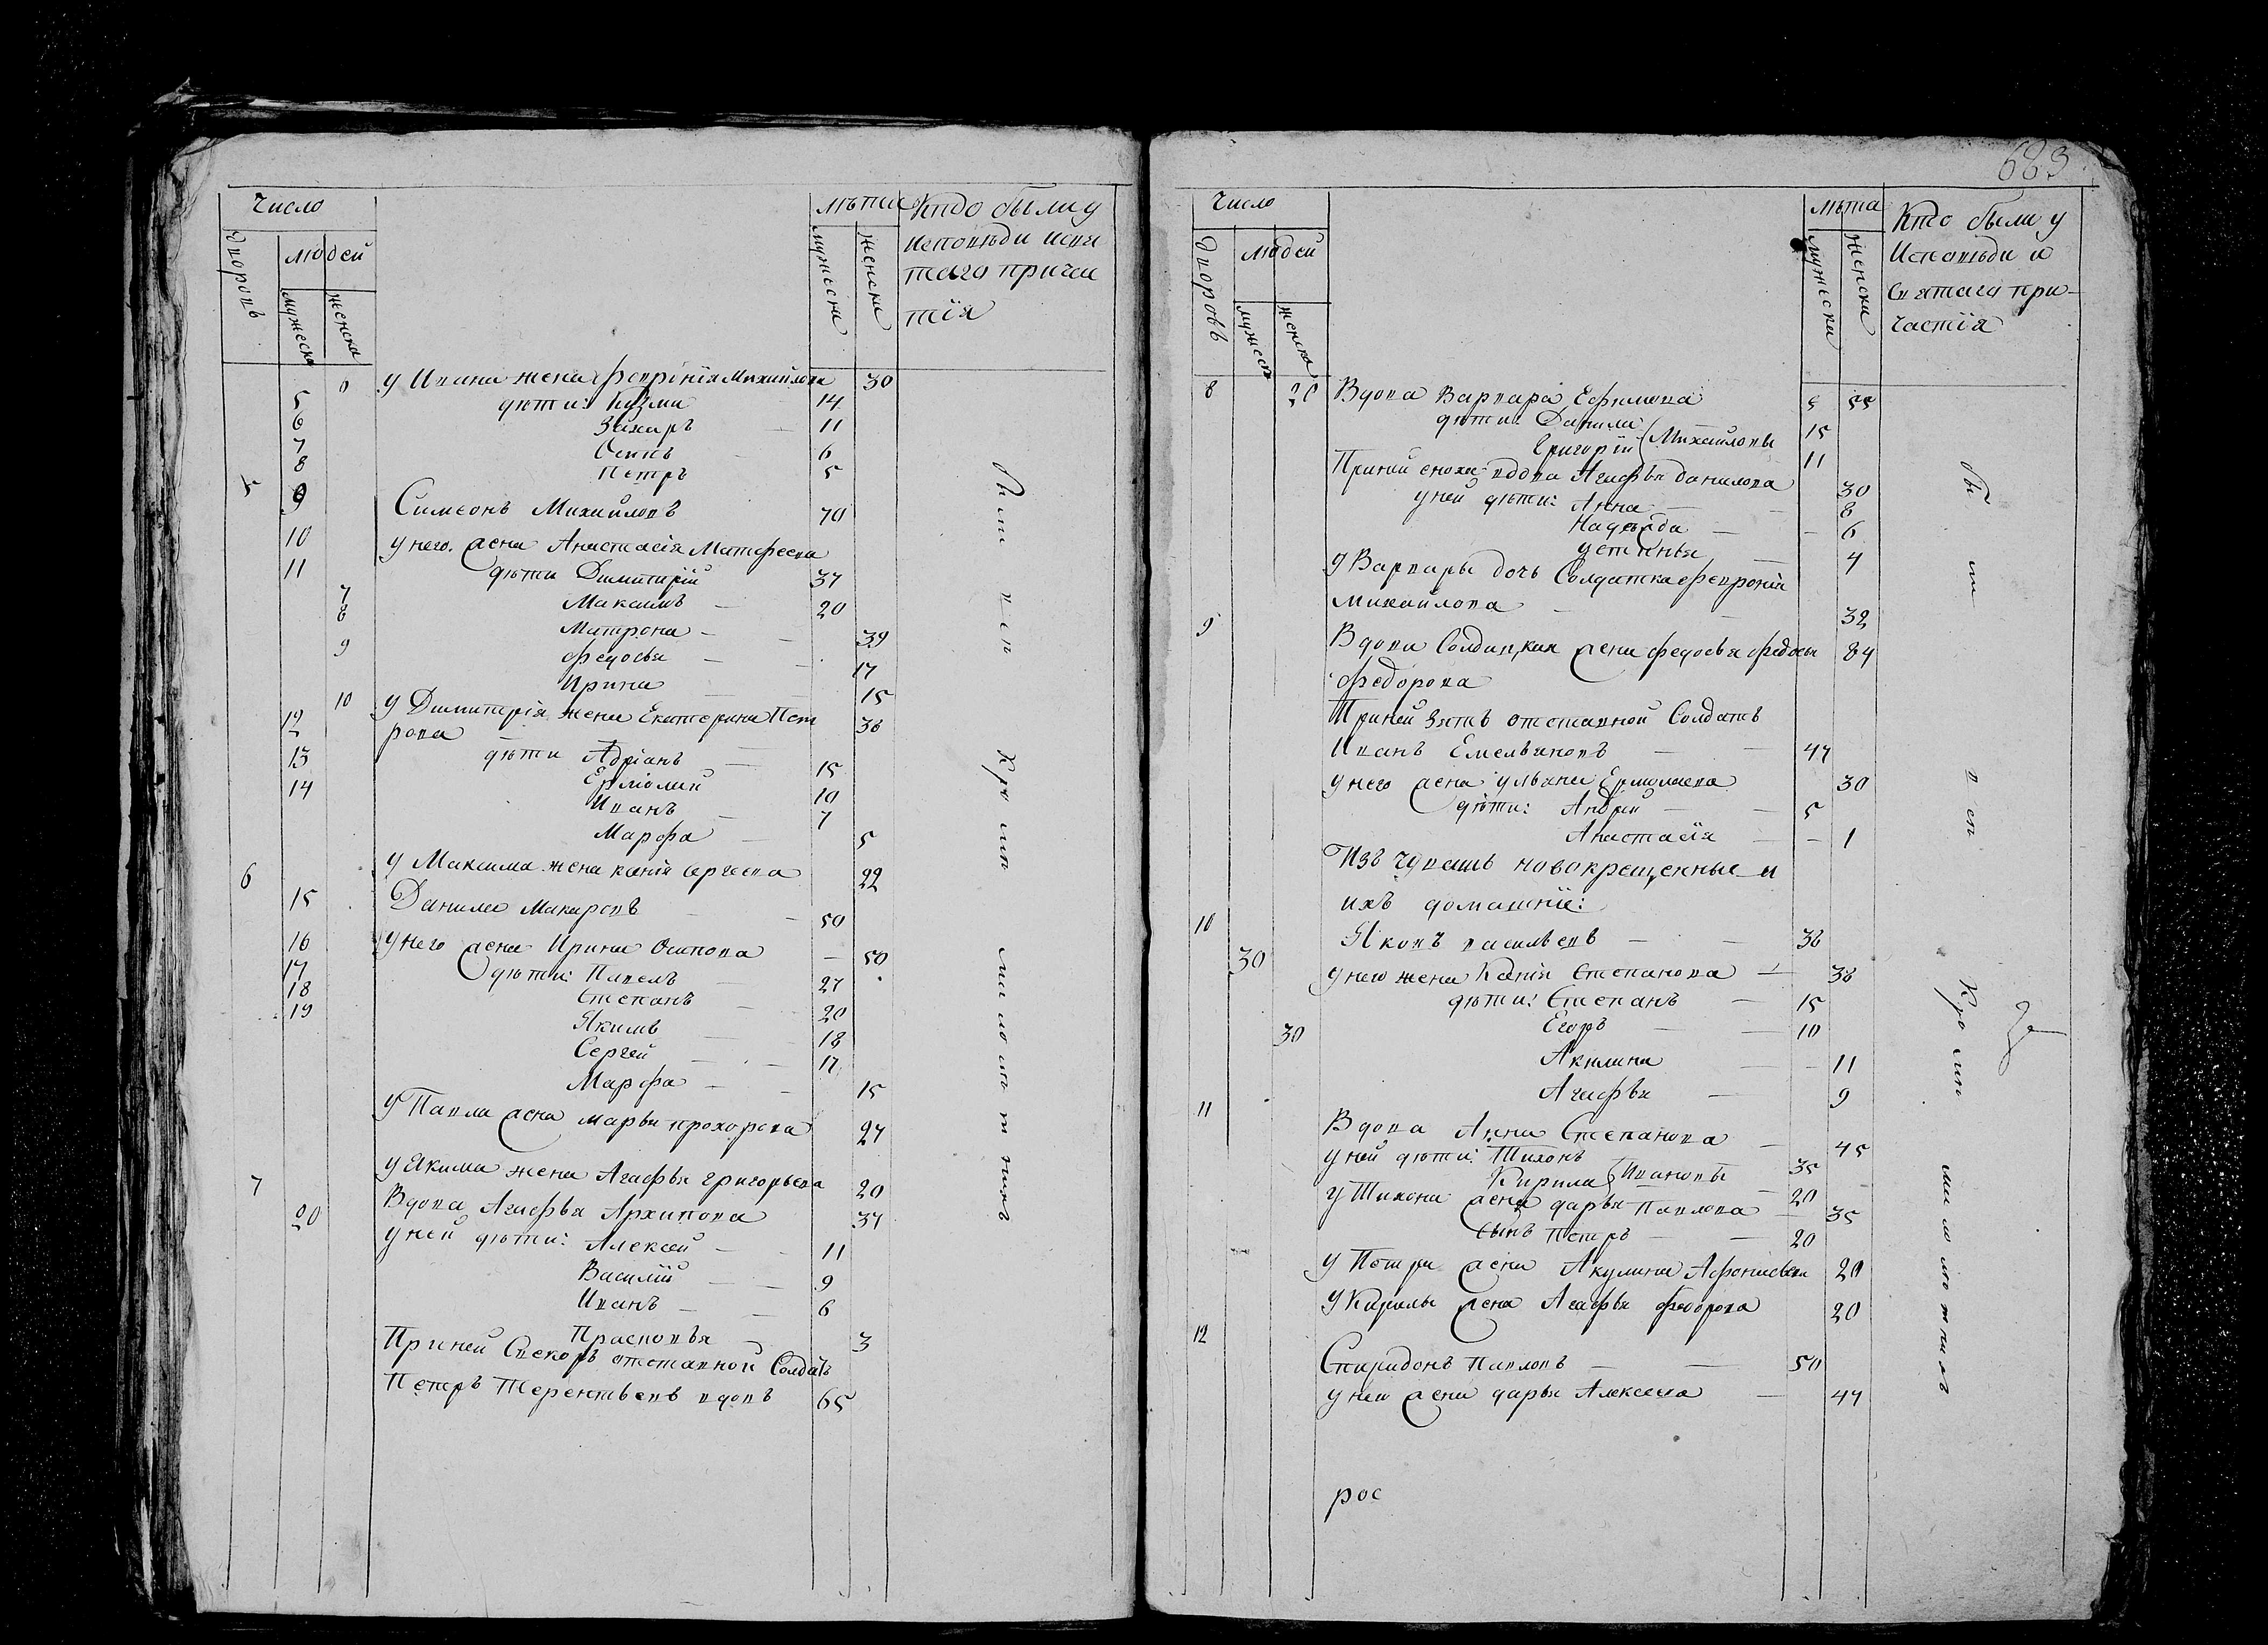 число
дворовъ
людей
мужеска
женска
лѣта
мужеска
женска
Кто были у
исповѣди исвя
таго причас
тїя
6 у Ивана жена Февронїя Михайлова 30
5 дѣти: Кузма 14
6 Захаръ 11
7 Осипъ 6
8 Петръ 5
5 9 Симеонъ Михайловъ 70
10 у него жена Анастасїя Матфеева
11 дѣти Димитрїй 37
7 Максимъ 20
8 Матрона 39
9 Федосья 17
Ирина 15
10 у Димитрїя жена Екатерина Пет 36
12 рова
13 дѣти Адрїанъ 15
14 Ермолай 10
Иванъ 7
Марфа 5
6 у Максима жена Ксенїя Сергеева 22
15 Данила Макаровъ 50
16 у него жена Ирина Осипова 50
17 дѣти: Павелъ 27
18 Степанъ 20
19 Якимъ 18
Сергей 17
Марфа 15
у Павла жена Марья Прохорова 27
у Якима жена Агафья Григорьева 20
7 Вдова Агафья Архипова 37
20 у ней дѣти: Алексей 11
Василїй 9
Иванъ 6
Прасковья 3
При ней Свекоръ отставной Солдатъ
Петръ Терентьевъ вдовъ 65
Были все Кромѣ малолѣтныхъ
683
Число
Дворовъ
людей
мужеска
женска
лѣта
мужеска
женска
Кто были у
Исповѣди и
Святаго при-
частїя
8 20 Вдова Варвара Ефимова 55
дѣти: Данила 15
Григорїй Михайловы 11
При ней сноха вдова Агафья Данилова 30
у ней дѣти: Анна 8
Надежда 6
устинья 4
у Варвары дочь Солдатка Февронїя
Михайлова 32
9 Вдова Солдатская жена Федосья Федосья 84
Федорова
При ней зять отставной Солдатъ
Иванъ Емельяновъ 47
у него жена ульяна Ермолаева 30
дѣти: Андрей 5
Анастасїя 1
Изъ Чувашъ новокрещенные и
ихъ домашнїе:
10 Яковъ васильевъ 36
30 у него жена Ксенїя Степанова 36
дѣти: Степанъ 15
30 Егоръ 10
Акилина 11
Агафья 9
11 Вдова Анна Степанова 45
у ней дѣти: Тихонъ 35
Кирила Ивановы 20
у Тихона жена дарья Павлова 35
сынъ Петръ 20
у Петра жена Акулина Афонасьева 20
у Кирилы жена Агафья Федорова 20
12 Спиридонъ Павловъ 50
у него жена дарья Алексеева 47
Были все Кромѣ малолѣтныхъ
рос